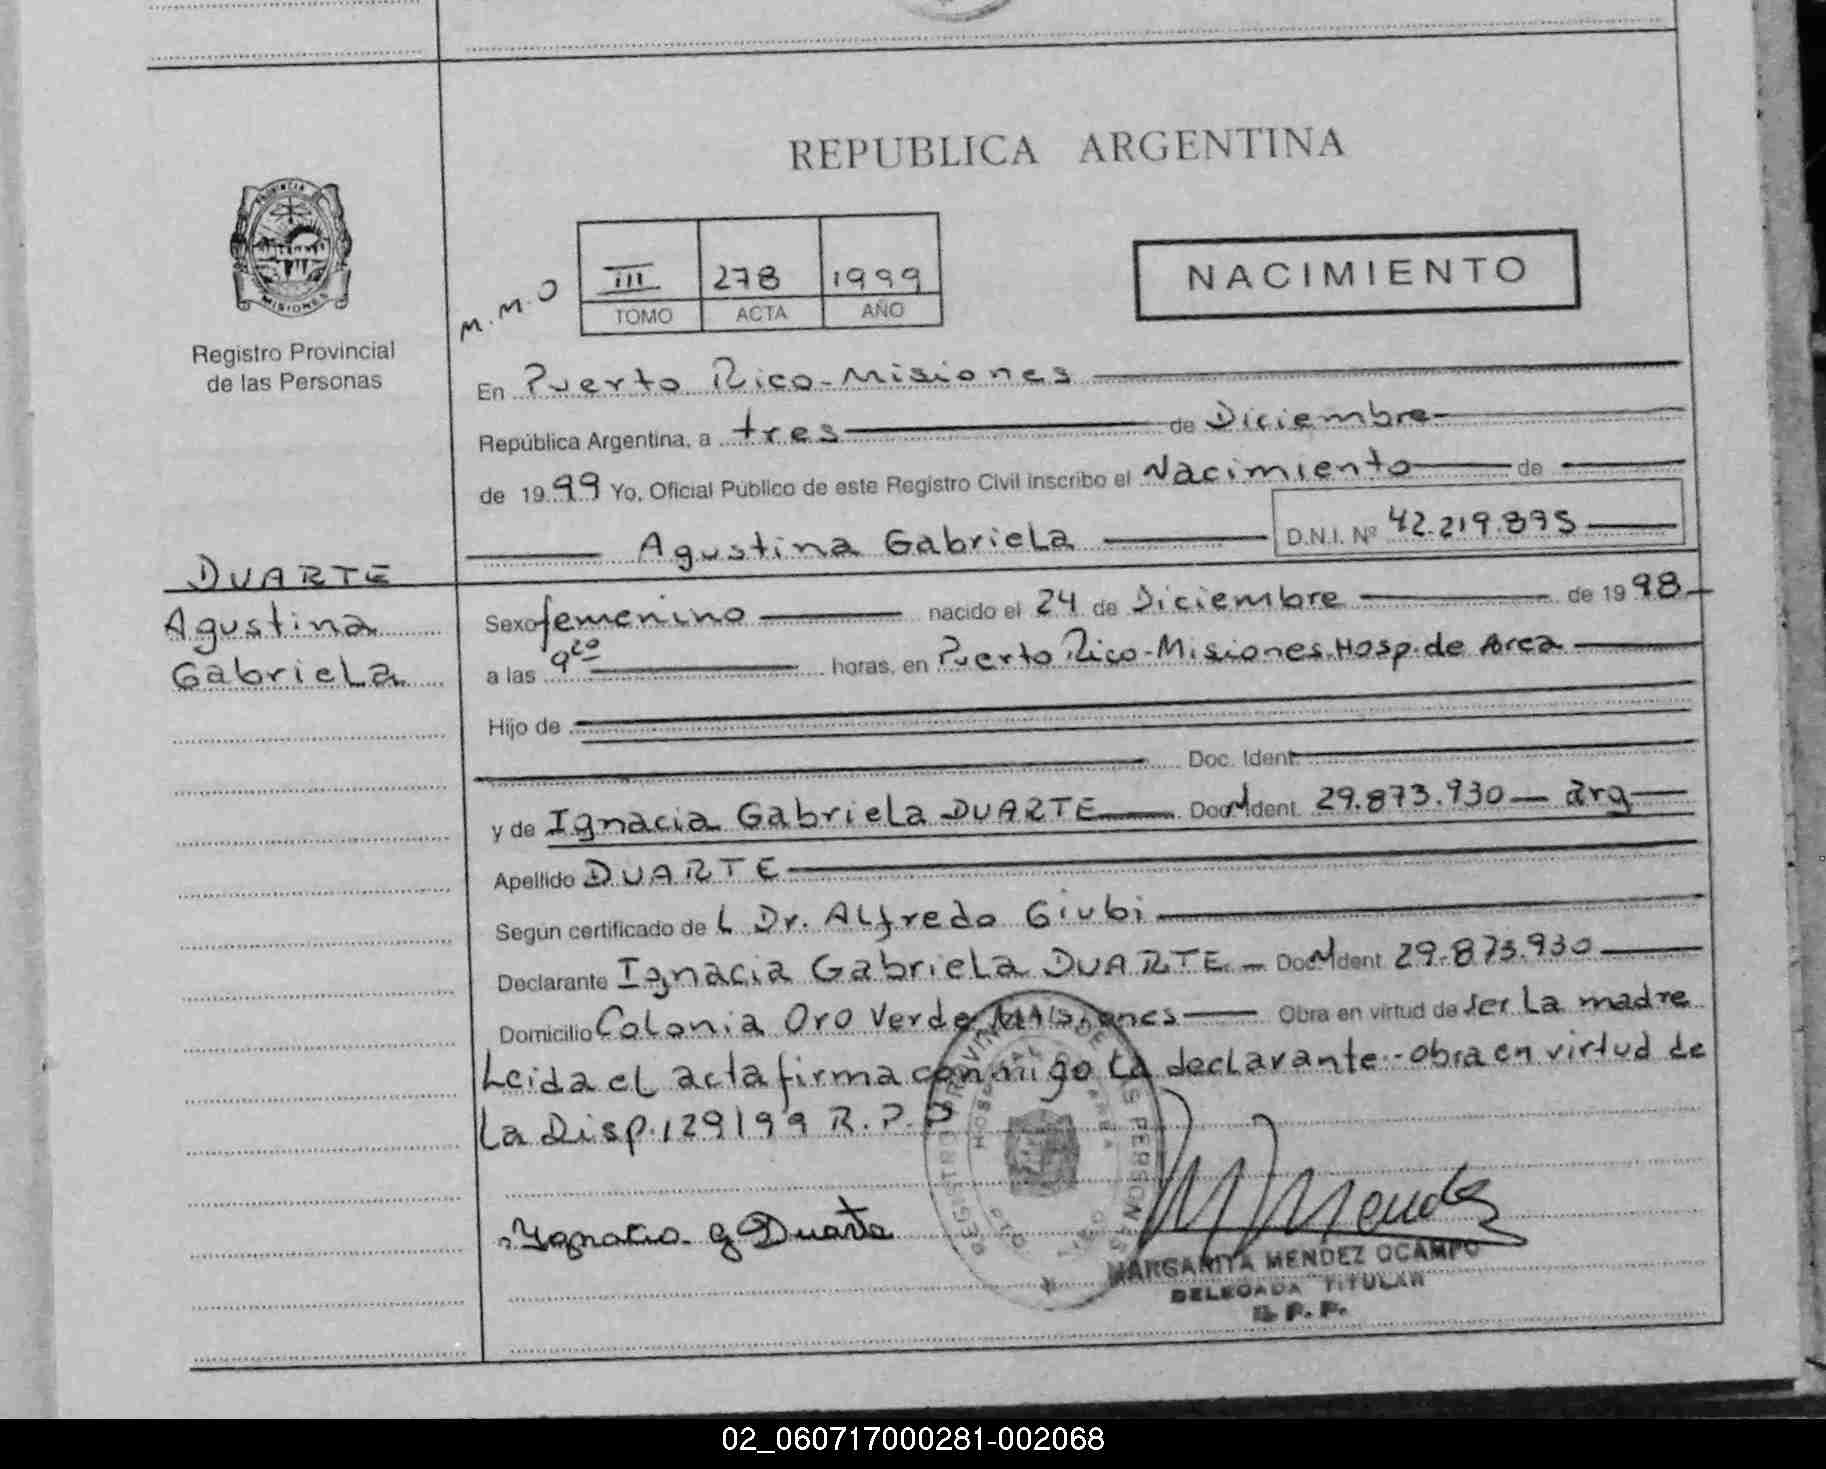 REPUBLICA ARGENTINA
PROVINCIA
MISIONES
Registro Provincial
de las Personas
M.M.O
III 278 1999
TOMO ACTA AÑO
NACIMIENTO
En Puerto Rico-Misiones
República Argentina, a tres de Diciembre
de 1999 Yo, Oficial Público de este Registro Civil inscribo el Nacimiento de
Agustina Gabriela D.N.I. Nº 42.219.895
DUARTE
Agustina
Gabriela
Sexo femenino nacido el 24 de Diciembre de 1998
a las 9 20 horas, en Puerto Rico-Misiones.Hosp.de Area
Hijo de
Doc. Ident.
y de Ignacia Gabriela DUARTE Doc. Ident. 29.873.930 - arg
Apellido DUARTE
Según certificado de L Dr. Alfredo Giubi
Declarante Ignacia Gabriela DUARTE - Doc. Ident. 29.873.930
Domicilio Colonia Oro Verde Misiones Obra en virtud de ser La madre
Leida el acta firma conmigo La declarante.-obra en virtud de
La Disp.129199 R.P.P
REGISTRO PROVINCIAL DE LAS PERSONAS
HOSPITAL AREA
Ygnacia G Duarte
M Mendez
MARGARITA MENDEZ OCAMPO
DELEGADA TITULAR
R. P. P.
02_060717000281-002068